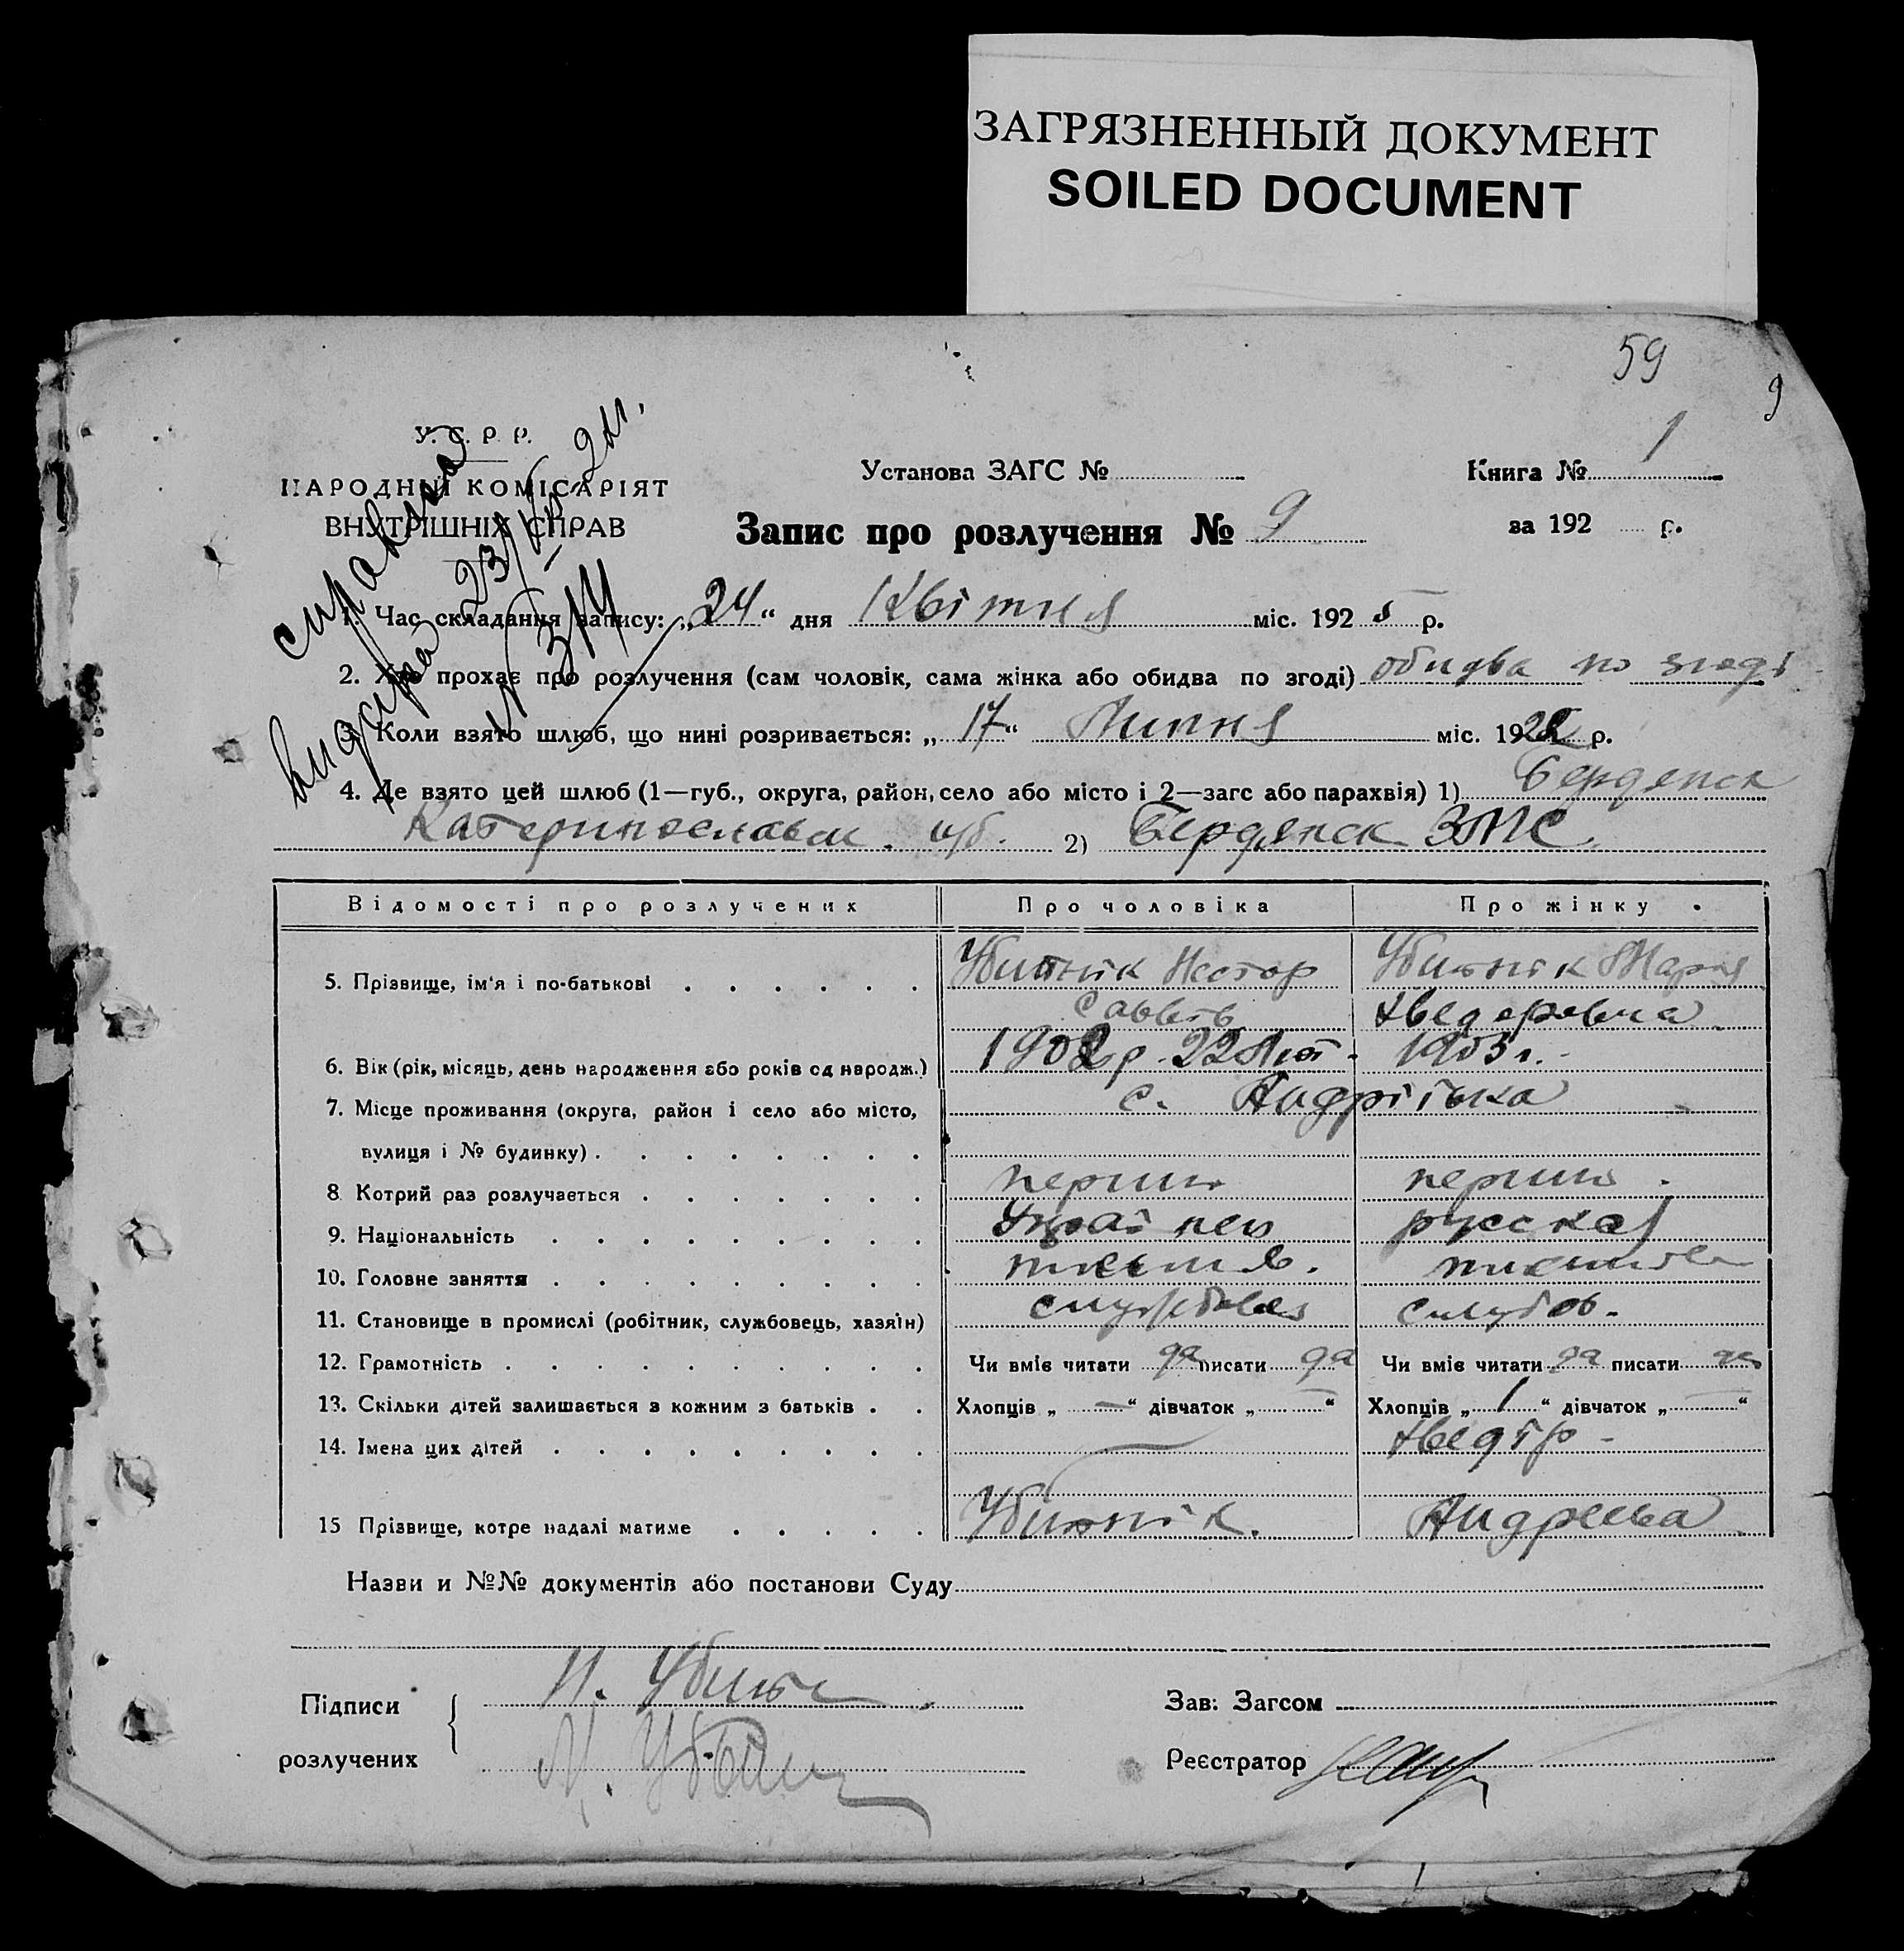 ЗАГРЯЗНЕННЫЙ ДОКУМЕНТ
SOILED DOCUMENT
59
9
У. С. Р. Р.
НАРОДНІЙ КОМІСАРІЯТ
ВНУТРІШНІХ СПРАВ
Установа ЗАГС №
Книга № 1
Запис про розлучення № 9
за 192 р.
1. Час складання запису: „24“ дня Квітня міс. 1925 р.
2. Хто прохає про розлучення (сам чоловік, сама жінка або обидва по згоді) обидва по згоді
3. Коли взято шлюб, що нині розривається: „17“ Липня міс. 1922 р.
4. Де взято цей шлюб (1—губ., округа, район, село або місто і 2—загс або парахвія) 1) Бердянск
Катеринославск. губ. 2) Бердянск ЗАГС.
Відомості про розлучених Про чоловіка Про жінку
5. Прізвище, ім'я і по-батькові Нестор Мария
1902 р. 22 Лют. 1903 г.
6. Вік (рік, місяць, день народження або років од народж.)
7. Місце проживання (округа, район і село або місто, с. Андріївка
вулиця і № будинку)
8 Котрий раз розлучається перший перший
9. Національність Українец русская
10. Головне заняття
11. Становище в промислі (робітник, службовець, хазяїн) службовец службов.
12. Грамотність Чи вміє читати да писати да Чи вміє читати да писати да
13. Скільки дітей залишається з кожним з батьків Хлопців „—“ дівчаток „—“ Хлопців „1“ дівчаток „—“
14. Імена цих дітей — Хведір -
15 Прізвище, котре надалі матиме Андреева
Назви и №№ документів або постанови Суду
Підписи
розлучених
Зав: Загсом
Реєстратор